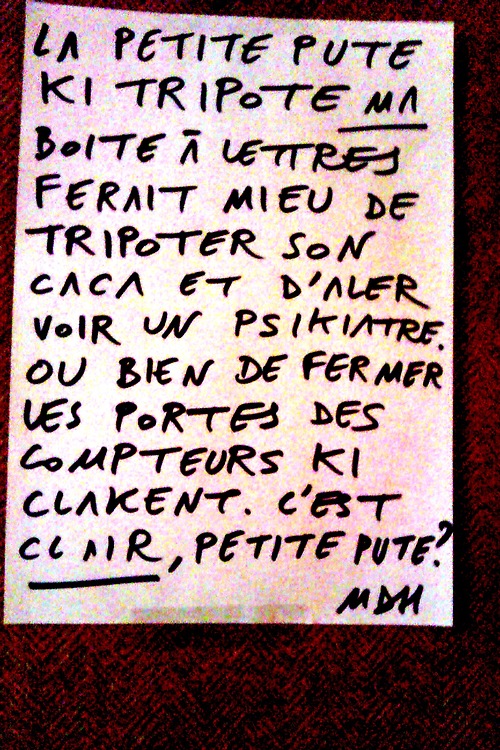 LA PETITE PUTE
KI TRIPOTE MA
BOITE À LETTRES
FERAIT MIEU DE
TRIPOTER SON
CACA ET D'ALER
VOIR UN PSIKIATRE.
OU BIEN DE FERMER
LES PORTES DES
COMPTEURS KI
CLAKENT. C'EST
CLAIR, PETITE PUTE?
MDH